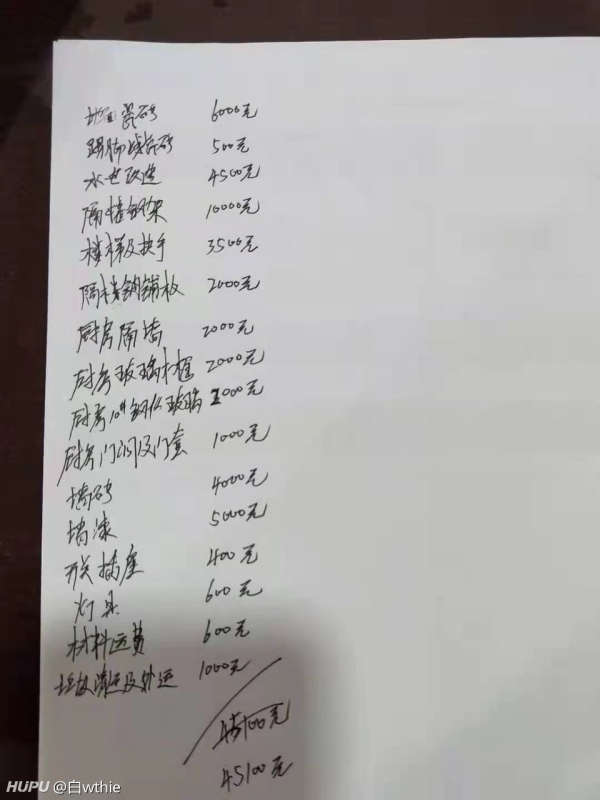 地面瓷砖 6000元
踢脚线瓷砖 500元
水电改造 4500元
隔楼钢架 10000元
楼梯及扶手 3500元
隔楼钢铺板 2000元
厨房隔墙 2000元
厨房玻璃木框 2000元
厨房10#钢化玻璃 2000元
厨房门洞及门套 1000元
墙砖 4000元
墙漆 5000元
开关插座 400元
灯具 600元
材料运费 600元
垃圾清运及外运 1000元
45100元
45100元
HUPU @白wthie